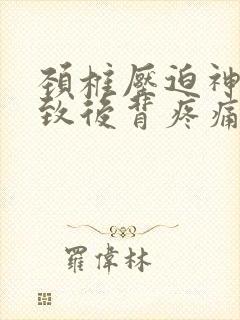 頚椎壓迫神
致後背疼痛
羅偉林